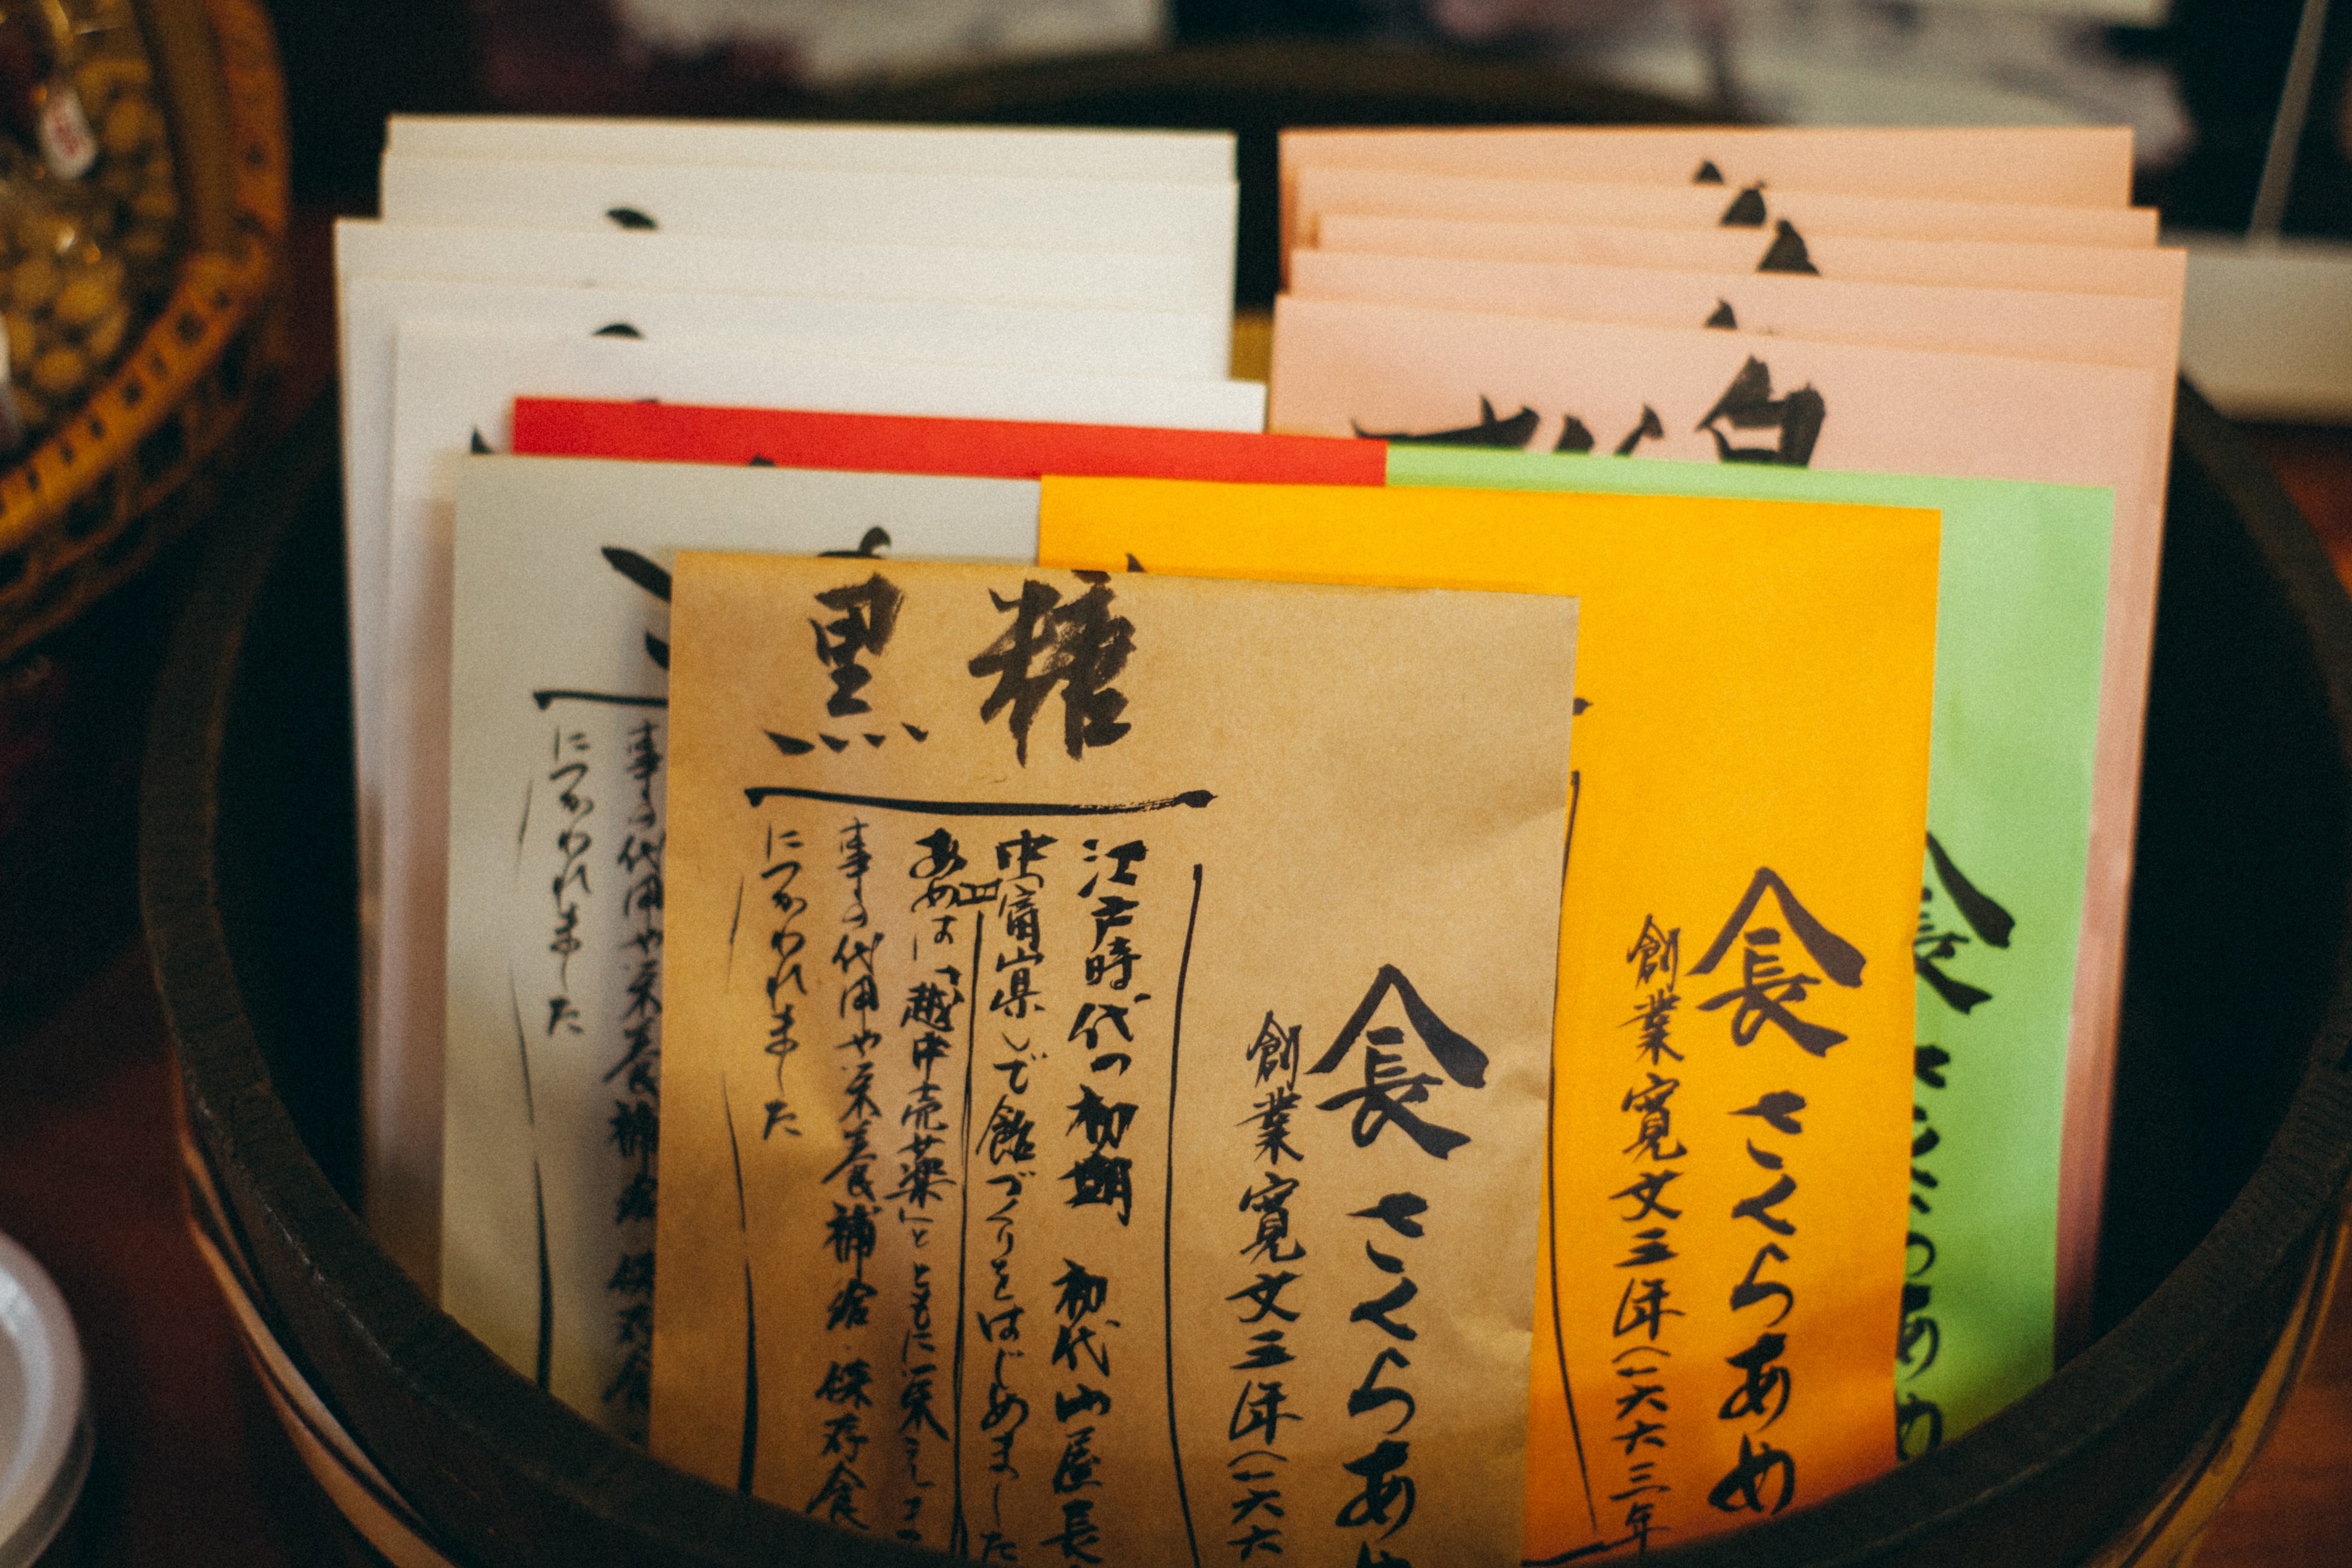 黒糖
長
さくらあめ
創業寛文三年(一六六
江戸時代の初期 初代山屋長
中(富山県)で飴づくりをはじめました
あめは「越中売薬」とともに栄えしょ
事の代用や栄養補給・保存食
につかわれました
長
さくらあめ
創業寛文三年(一六六三年
長
さくらあめ
事の代用や栄養補給・保存食
につかわれました
白